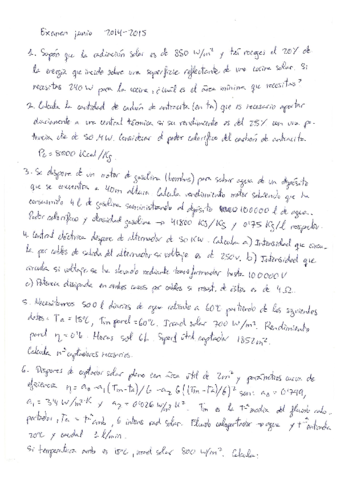 Examen junio 2014-2015
1. Supón que la radiación solar es de 850 W/m² y tú recoges el 20% de
la energía que incide sobre una superficie reflectante de una cocina solar. Si
necesitas 240 W para la cocina, ¿cuál es el área mínima que necesitas?
2. Calcula la cantidad de carbón de antracita (en tn) que es necesario aportar
diariamente a una central térmica si su rendimiento es del 25% con una po-
tencia útil de 50 MW. Considerar el poder calorífico del carbón de antracita
Pc = 8000 Kcal/Kg.
3. Se dispone de un motor de gasolina (bomba) para subir agua de un depósito
que se encuentra a 40m altura. Calcula rendimiento motor sabiendo que ha
consumido 4 l de gasolina suministrando al depósito 100000 l de agua.
Poder calorífico y densidad gasolina → 41800 KJ/Kg y 0'75 Kg/l
4. Central eléctrica dispone de alternador de 50 KW. Calcula: a) Intensidad que circu-
la por cables de salida del alternador si voltaje es de 250V. b) Intensidad que
circula si voltaje se ha elevado mediante transformador hasta 100000 V
c) Potencia disipada en ambos casos por cables si resist. de éstos es de 4 Ω.
5. Necesitamos 500 l diarios de agua caliente a 60ºC partiendo de los siguientes
datos: Ta = 15ºC, Irrad solar 700 W/m². Rendimiento
panel η = 0'6. Horas sol 6h. Superf útil captador 1'85 m².
Calcula nº captadores necesarios.
6. Dispones de captador solar plano con área útil de 2m² y parámetros curva de
eficiencia η = a₀ - a₁(Tm-ta)/G - a₂ G((Tm-Ta)/G)² son: a₀ = 0'749,
Tm es la tª media del fluido calo-
portador, Ta = tª amb, G intens rad solar. Fluido caloportador → agua y tª entrada
70ºC y caudal 1 l/min.
Si temperatura amb es 15ºC, irrad solar 800 W/m². Calcula: